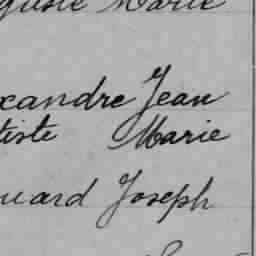 guste Marie
xandre Jean
tiste Marie
uard Joseph